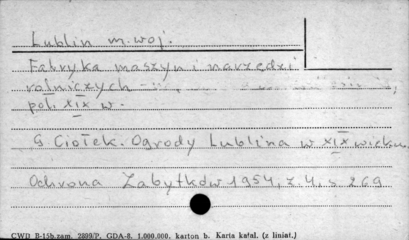 Lublin m. woj.
Fabryka maszyn i narzędzi
rolniczych
poł. XIX w.
G. Ciołek. Ogrody Lublina w XIX wieku.
Ochrona Zabytków 1954, z. 4, s. 269
CWD B-15h.zam. 2899/P. GDA-8. 1.000.000. karton b. Karta katal. (z liniat.)